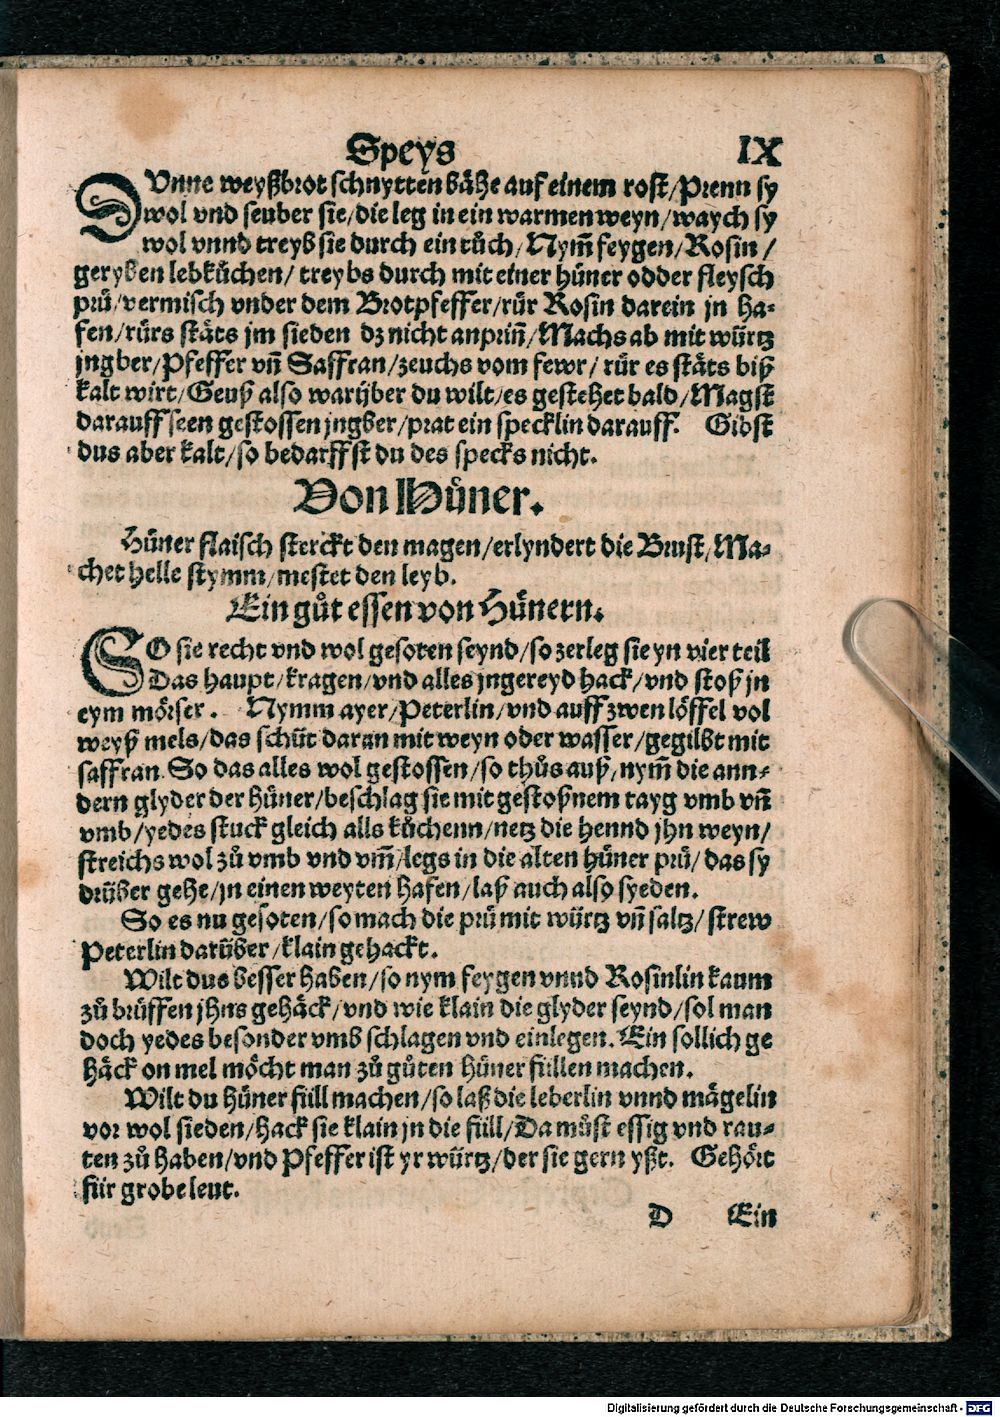 Speys IX
DVnne weyßbrot schnytten bähe auf einem rost/Prenn sy
wol vnd seuber sie/die leg in ein warmen weyn/waych sy
wol vnnd treyb sie durch ein tůch/Nym̃ feygen/Rosin/
geryben lebkůchen/treybs durch mit einer hüner odder fleysch
prü/vermisch vnder dem Brotpfeffer/rür Rosin darein jn ha-
fen/rürs stäts jm sieden dz nicht anpriñ/Machs ab mit würtz
jngber/Pfeffer vñ Saffran/zeuchs vom fewr/rür es stäts biß
kalt wirt/Geuß also warüber du wilt/es gestehet bald/Magst
darauff seen gestossen jngber/prat ein specklin darauff. Gibst
dus aber kalt/so bedarffst du des specks nicht.
Von Hüner.
Hüner flaisch sterckt den magen/erlyndert die Brust/Ma-
chet helle stymm/mestet den leyb.
Ein gůt essen von Hünern.
SO sie recht vnd wol gesoten seynd/so zerleg sie yn vier teil
Das haupt/kragen/vnd alles jngereyd hack/vnd stoß jn
eym mörser. Nymm ayer/Peterlin/vnd auff zwen löffel vol
weyß mels/das schüt daran mit weyn oder wasser/gegilbt mit
saffran. So das alles wol gestossen/so thůs auß/nym̃ die ann-
dern glyder der hüner/beschlag sie mit gestoßnem tayg vmb vñ
vmb/yedes stuck gleich alls kůchenn/netz die hennd jhn weyn/
streichs wol zů vmb vnd vm̃/legs in die alten hüner prü/das sy
drüber gehe/jn einen weyten hafen/laß auch also syeden.
So es nu gesoten/so mach die prü mit würtz vñ saltz/strew
Peterlin darüber/klain gehackt.
Wilt dus besser haben/so nym feygen vnnd Rosinlin kaum
zů brüffen jhns gehäck/vnd wie klain die glyder seynd/sol man
doch yedes besonder vmb schlagen vnd einlegen. Ein sollich ge
häck on mel möcht man zů gůten hüner füllen machen.
Wilt du hüner füll machen/so laß die leberlin vnnd mägelin
vor wol sieden/hack sie klain jn die füll/Da můst essig vnd rau-
ten zů haben/vnd Pfeffer ist yr würtz/der sie gern yßt. Gehört
für grobe leut.
D Ein
Digitalisierung gefördert durch die Deutsche Forschungsgemeinschaft - DFG